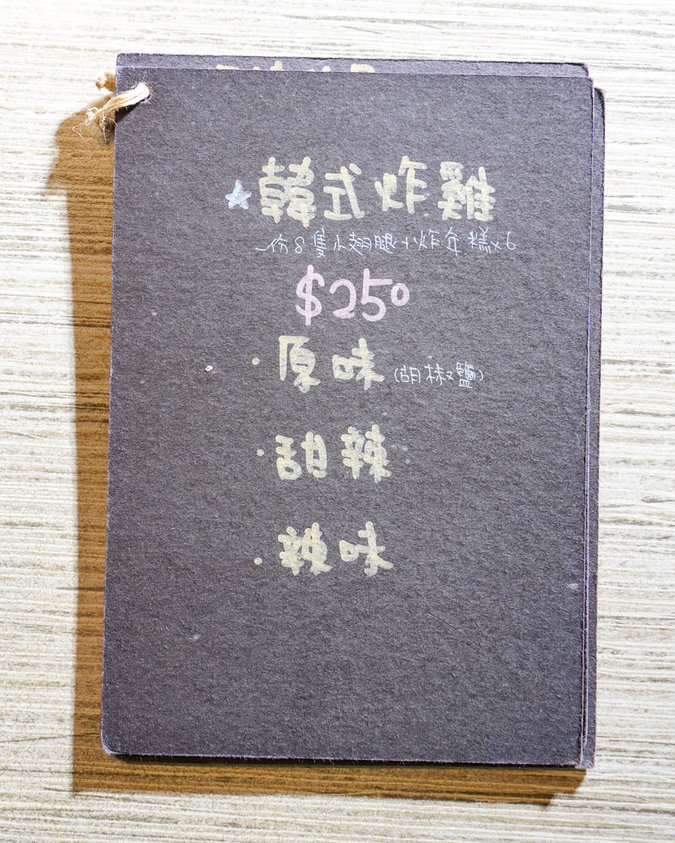 ★韓式炸雞
一份8隻小翅腿+炸年糕x6
$250
·原味(胡椒鹽)
·甜辣
·辣味